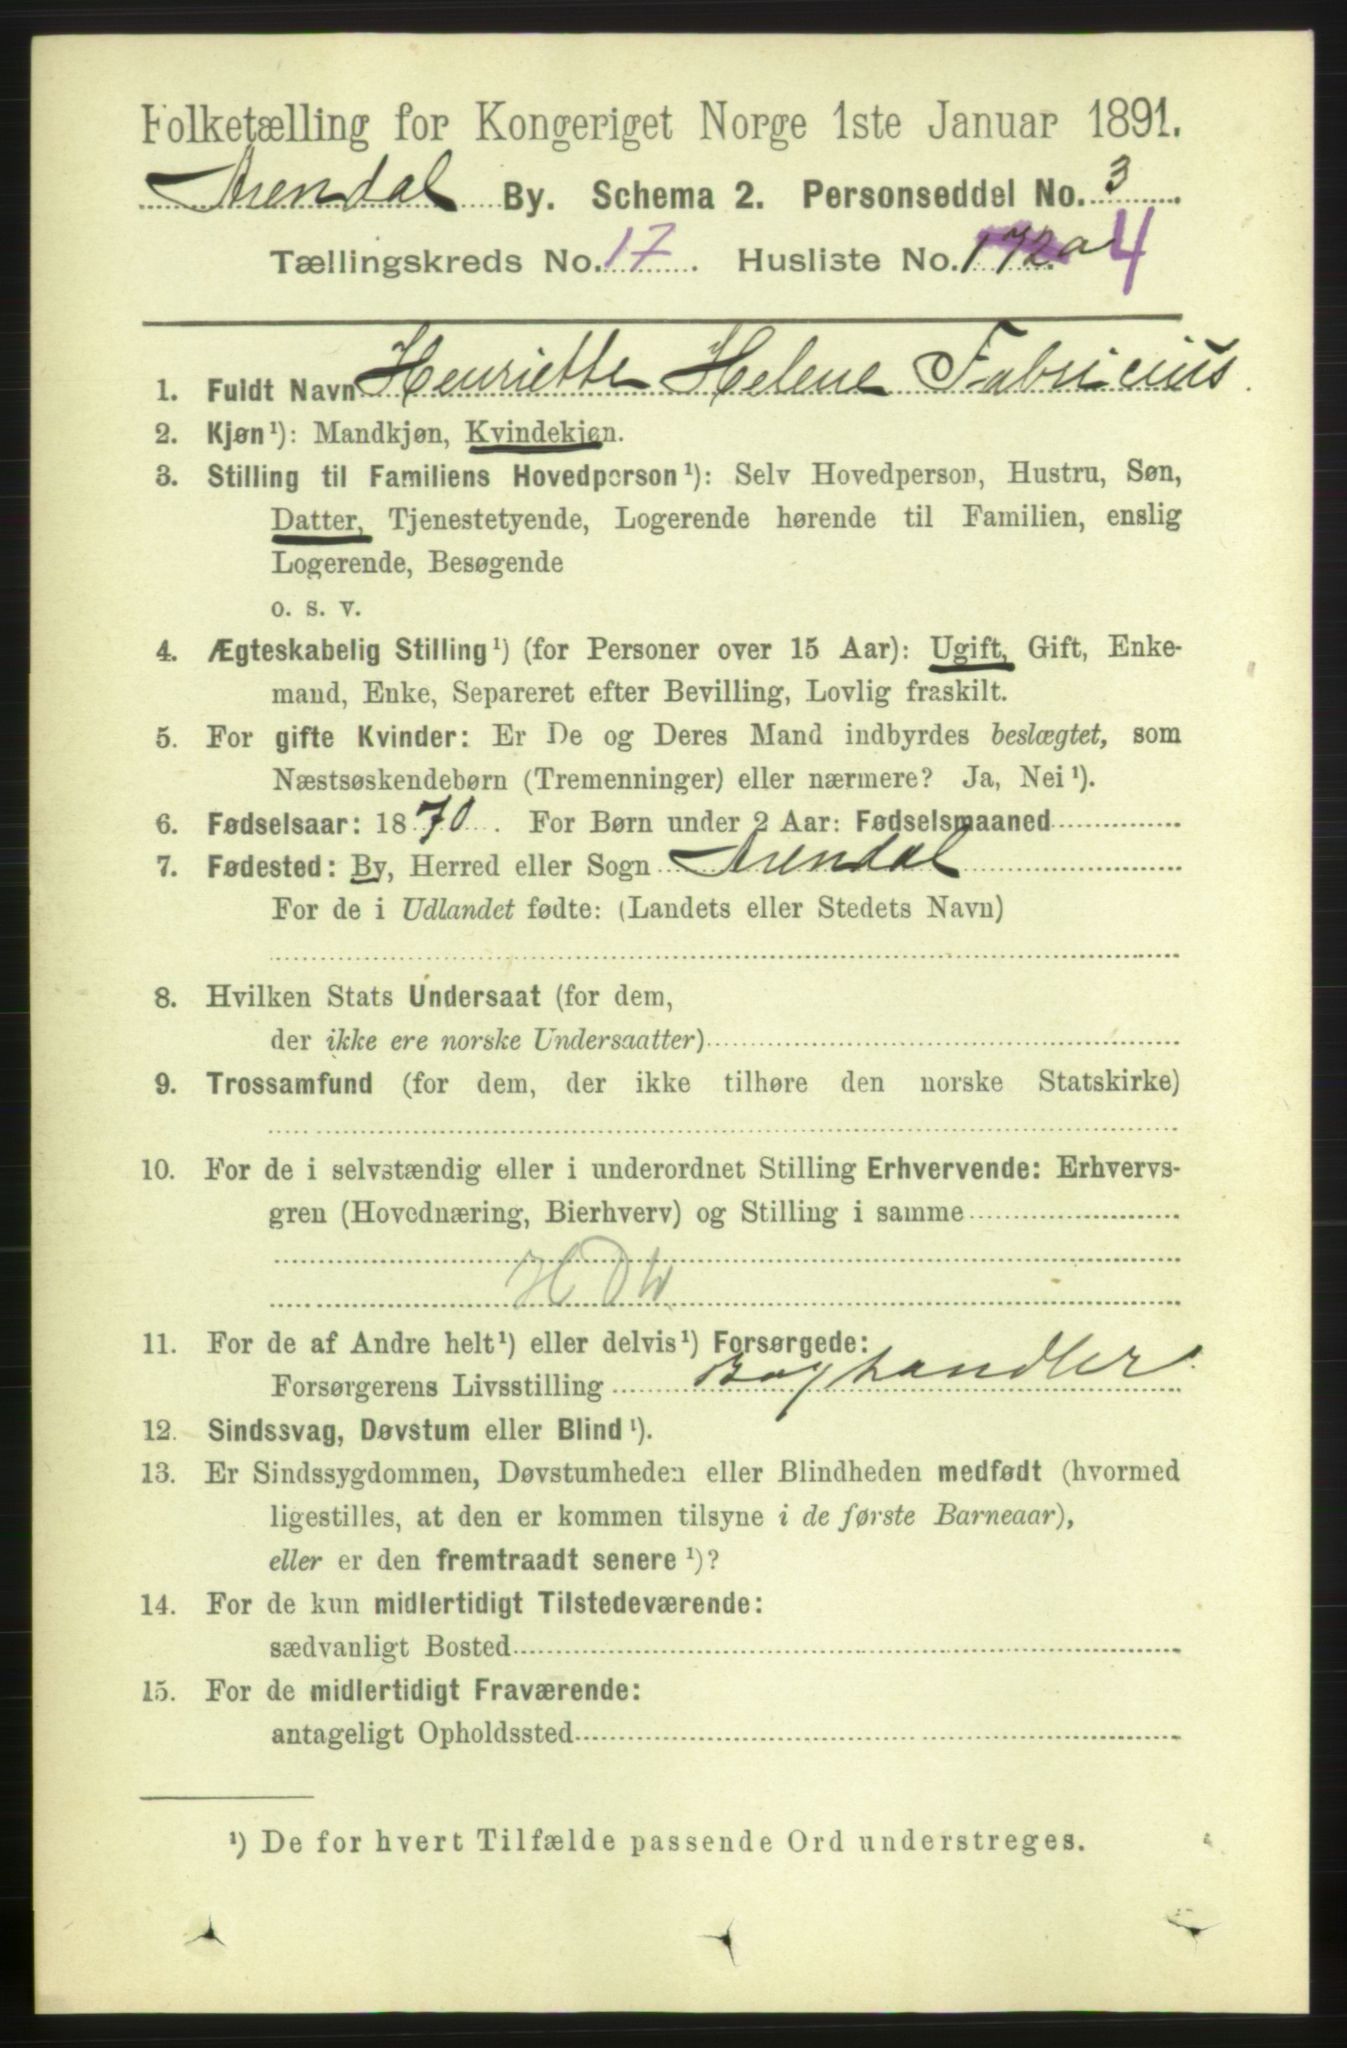 Folketælling for Kongeriget Norge 1ste Januar 1891.
Arendal By. Schema 2. Personseddel No. 3
Tællingskreds No. 17. Husliste No. 172a 4
1. Fuldt Navn Henriette Helene Fabricius.
2. Kjøn¹): Mandkjøn, Kvindekjøn.
3. Stilling til Familiens Hovedperson¹): Selv Hovedperson, Hustru, Søn,
Datter, Tjenestetyende, Logerende hørende til Familien, enslig
Logerende, Besøgende
o. s. v.
4. Ægteskabelig Stilling¹) (for Personer over 15 Aar): Ugift, Gift, Enke-
mand, Enke, Separeret efter Bevilling, Lovlig fraskilt.
5. For gifte Kvinder: Er De og Deres Mand indbyrdes beslægtet, som
Næstsøskendebørn (Tremenninger) eller nærmere? Ja, Nei¹).
6. Fødselsaar: 1870. For Børn under 2 Aar: Fødselsmaaned
7. Fødested: By, Herred eller Sogn Arendal
For de i Udlandet fødte: (Landets eller Stedets Navn)
8. Hvilken Stats Undersaat (for dem,
der ikke ere norske Undersaatter)
9. Trossamfund (for dem, der ikke tilhøre den norske Statskirke)
10. For de i selvstændig eller i underordnet Stilling Erhvervende: Erhvervs-
gren (Hovednæring, Bierhverv) og Stilling i samme
11. For de af Andre helt¹) eller delvis¹) Forsørgede:
Forsørgerens Livsstilling Boghandler
12. Sindssvag, Døvstum eller Blind¹).
13. Er Sindssygdommen, Døvstumheden eller Blindheden medfødt (hvormed
ligestilles, at den er kommen tilsyne i de første Barneaar),
eller er den fremtraadt senere¹)?
14. For de kun midlertidigt Tilstedeværende:
sædvanligt Bosted
15. For de midlertidigt Fraværende:
antageligt Opholdssted
¹) De for hvert Tilfælde passende Ord understreges.